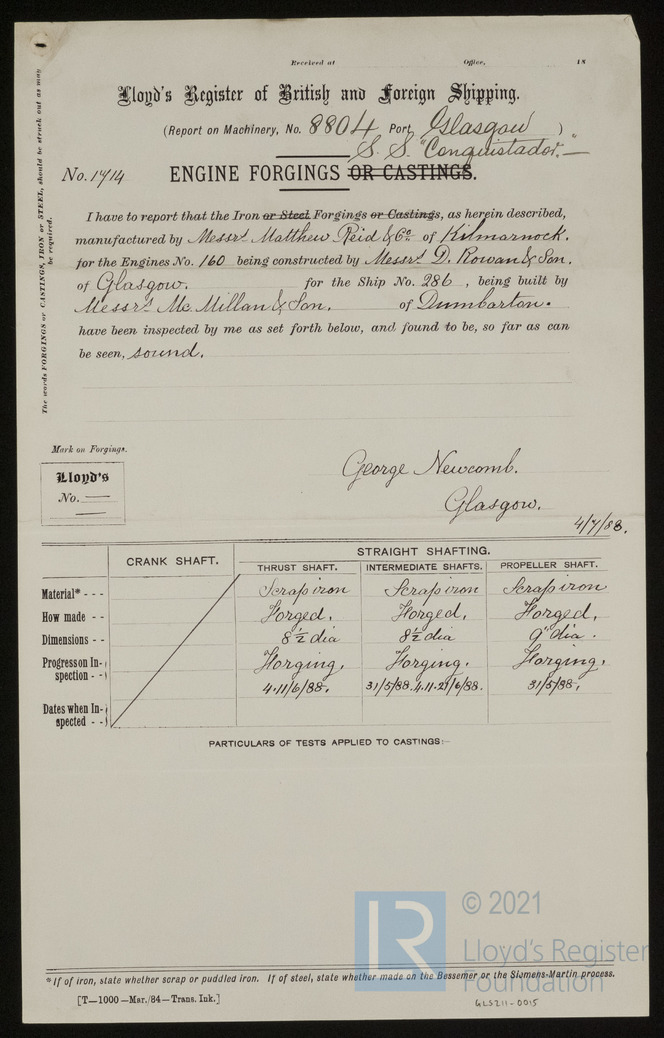 Received at Office, 18
Lloyd's Register of British and Foreign Shipping.
(Report on Machinery, No. 8804 Port Glasgow )
S. S. "Conquistador."
No. 1714 ENGINE FORGINGS OR CASTINGS.
The words FORGINGS or CASTINGS, IRON or STEEL, should be struck out as may be required.
I have to report that the Iron or Steel Forgings or Castings, as herein described,
manufactured by Messrs Matthew Reid & Co. of Kilmarnock.
for the Engines No. 160 being constructed by Messrs D. Rowan & Son.
of Glasgow. for the Ship No. 286 , being built by
Messrs Mc. Millan & Son. of Dumbarton.
have been inspected by me as set forth below, and found to be, so far as can
be seen, sound.
Mark on Forgings.
Lloyd's
No. —
George Newcomb.
Glasgow.
4/7/88.
CRANK SHAFT. STRAIGHT SHAFTING.
THRUST SHAFT. INTERMEDIATE SHAFTS. PROPELLER SHAFT.
Material* - - - Scrap iron Scrap iron Scrap iron
How made - - Forged. Forged. Forged.
Dimensions - - 8½ dia 8½ dia 9" dia.
Progress on In-
spection - - Forging. Forging. Forging.
4.11/6/88. 31/5/88.4.11.21/6/88. 31/5/88.
Dates when In-
spected - -
PARTICULARS OF TESTS APPLIED TO CASTINGS:—
LR
© 2021
Lloyd's Register
Foundation
* If of iron, state whether scrap or puddled iron. If of steel, state whether made on the Bessemer or the Siemens-Martin process.
[T—1000—Mar./84—Trans. Ink.]
GLS211-0015